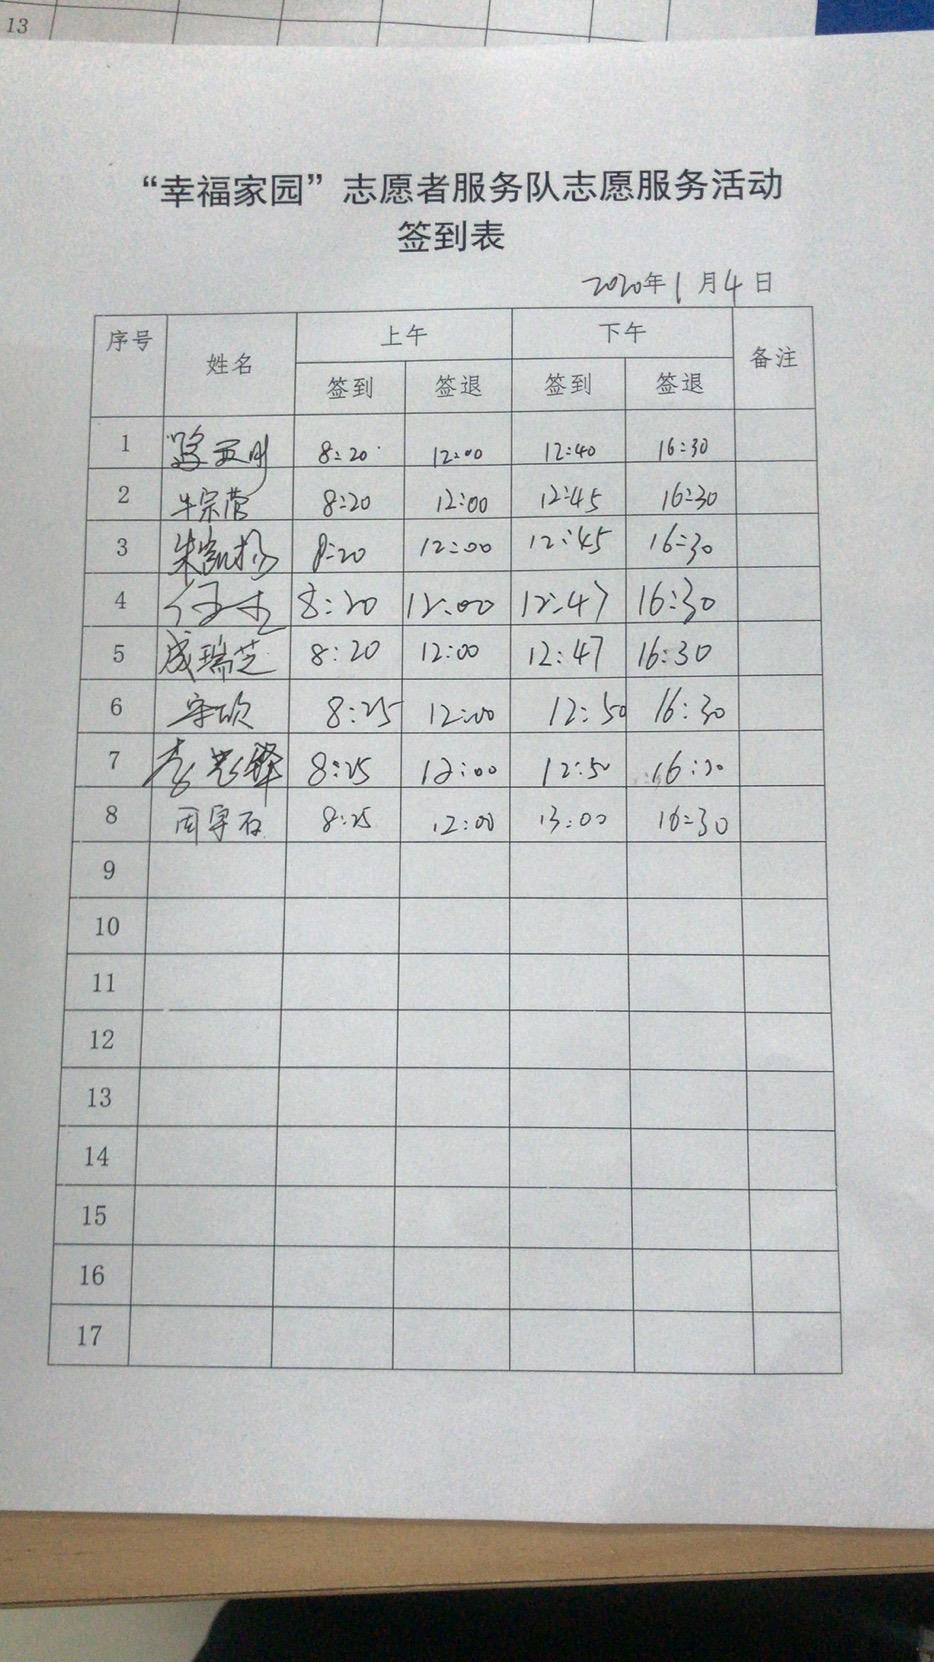 13
“幸福家园”志愿者服务队志愿服务活动
签到表
2020年1月4日
序号 姓名 上午 下午 备注
签到 签退 签到 签退
1 8:20 12:00 12:40 16:30
2 牛宗营 8:20 12:00 12:45 16:30
3 朱凯杨 8:20 12:00 12:45 16:30
4 8:20 12:00 12:47 16:30
5 成瑞芝 8:20 12:00 12:47 16:30
6 8:25 12:00 12:50 16:30
7 8:25 12:00 12:50 16:30
8 8:25 12:00 13:00 16:30
9
10
11
12
13
14
15
16
17